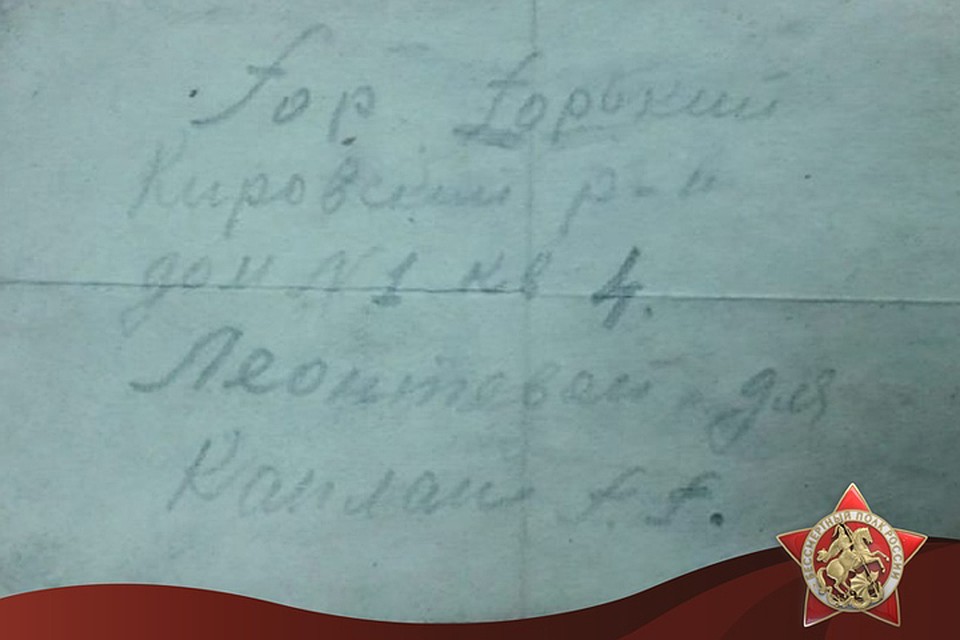 Гор Горький
Кировский р-н
дом N 1 кв 4.
Леонтевой для
Каплан
БЕССМЕРТНЫЙ ПОЛК РОССИИ